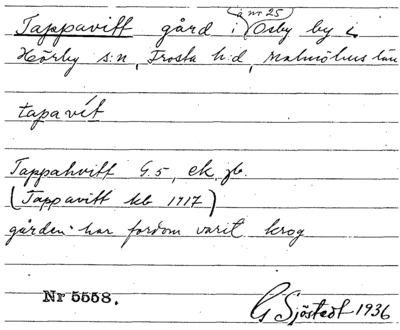 Tappavitt gård i (å nr 25) Osby by i
Hörby s:n, Frosta h:d, Malmöhus län
tapavít
Tappahvitt G.5, ek. jb.
(Tappavitt kb 1917)
gården har fordom varit krog
Nr 5558.
G Sjöstedt 1936